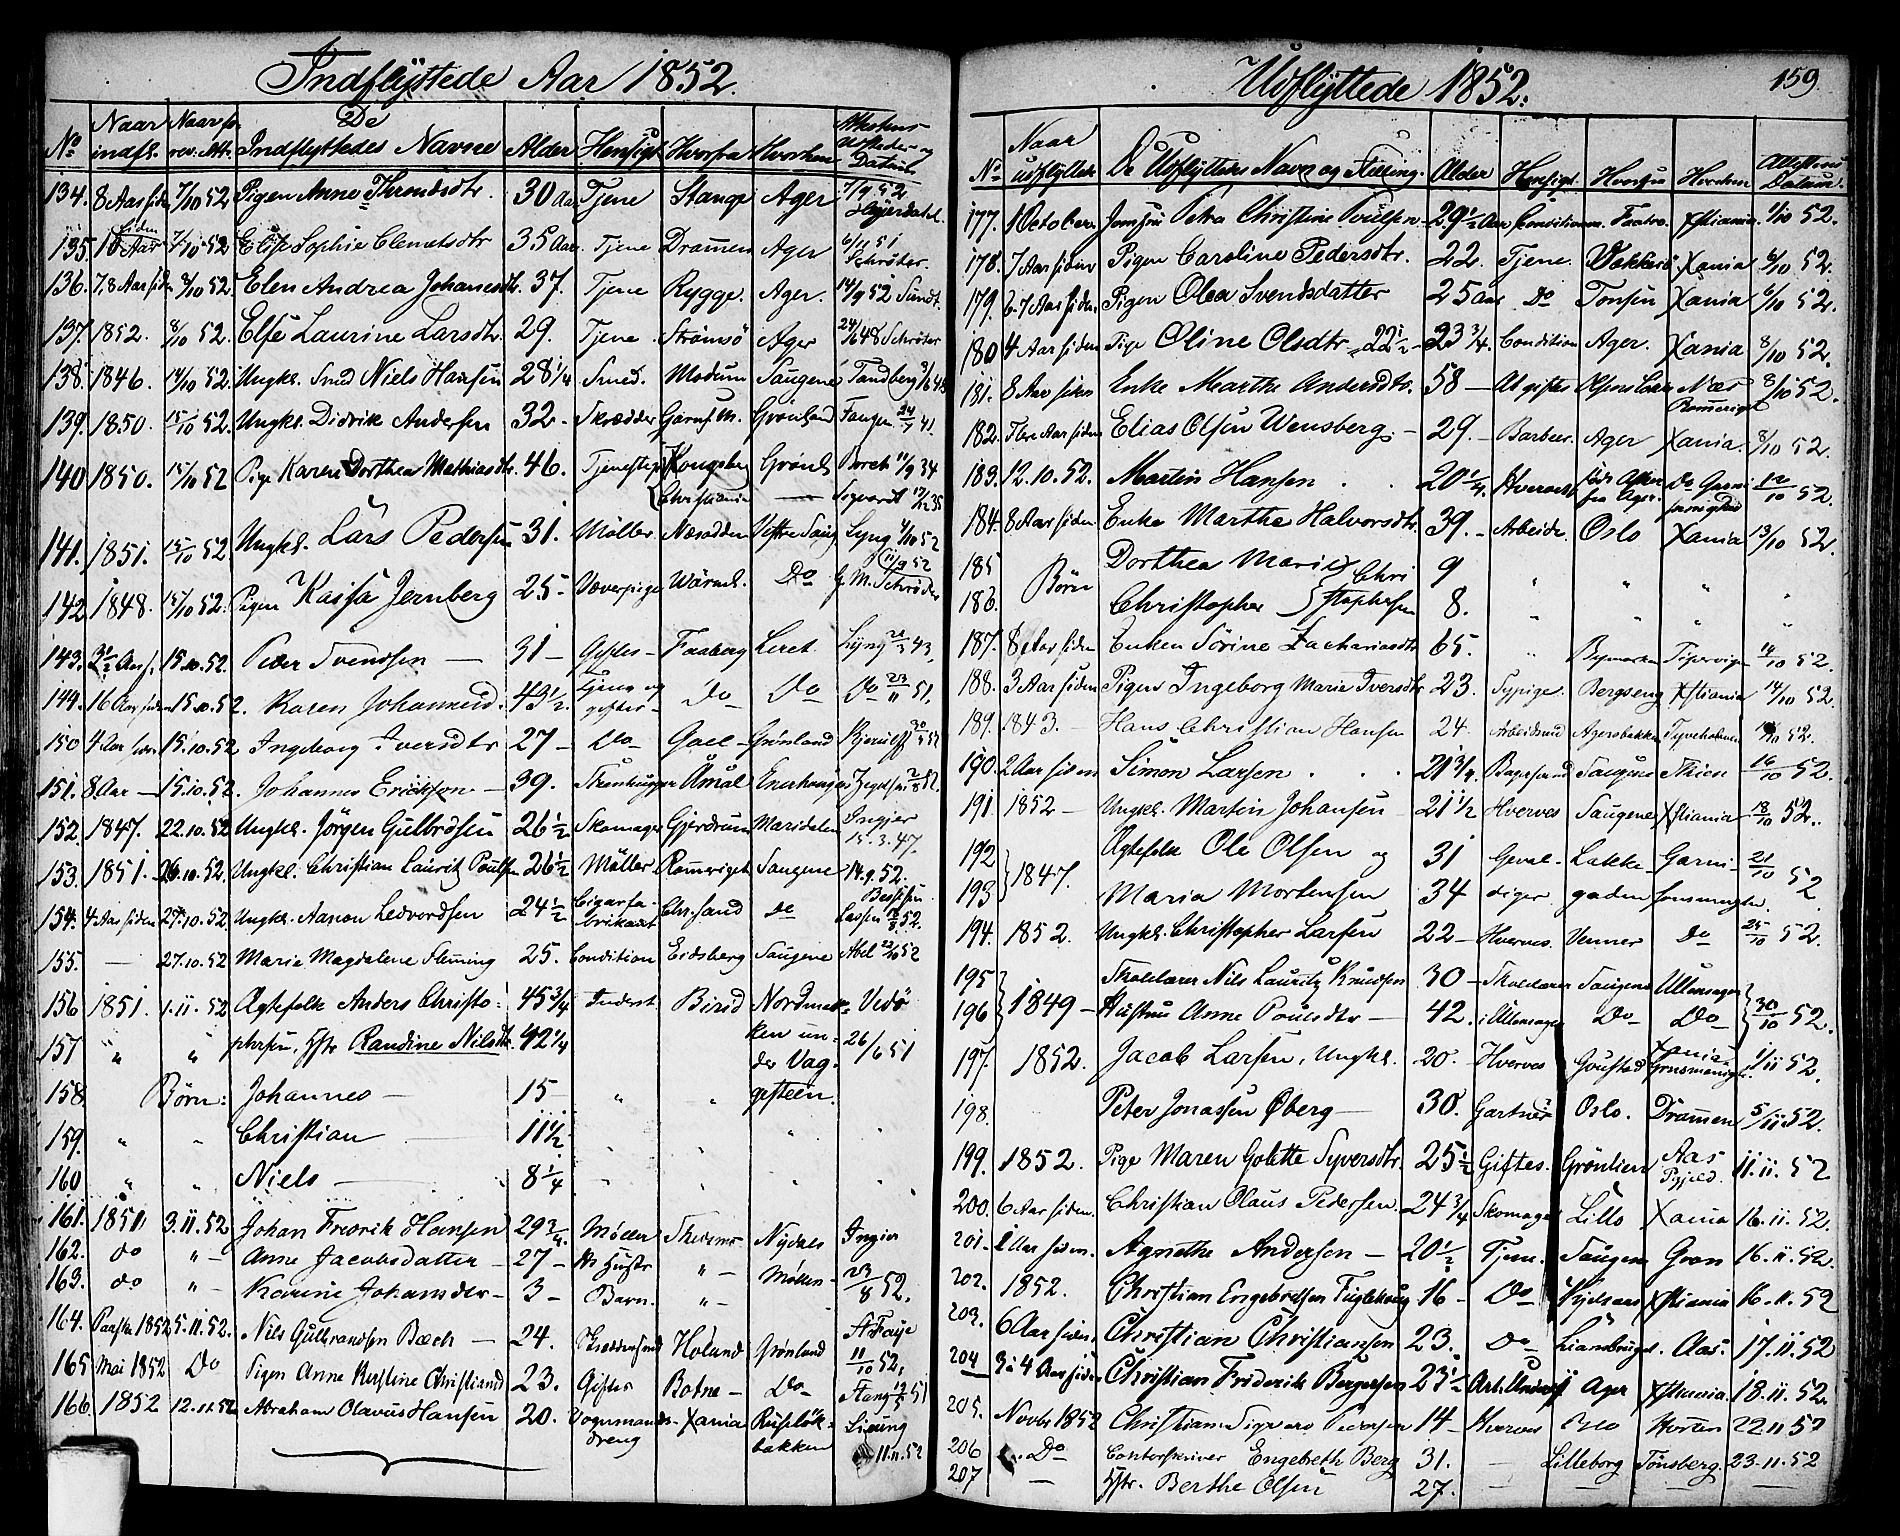 Indflyttede Aar 1852.
No Naar indfl. Naar for rev. Att. De Indflyttedes Navne Alder Hensigt Hvorfra Hvorhen Attestens Udsteder og Datum
134. 8 Aar siden 7/10 52. Pigen Anne Throndsdtr 30 Aar Tjene Stange Ager 7/9 52 Heyerdahl.
135. siden 10 Aar 7/10 52 Else Sophie Clemetsdtr 35 Aar Tjene Drammen Ager 6/11 51 Schrøter.
136. 7,8 Aar siden 8/10 52. Elen Andrea Johanesdtr. 37. Tjene Rygge. Ager. 14/9 52 Sundt.
137. 1852. 8/10 52. Else Laurine Larsdtr. 29. Tjene Strømsö Ager 24/6 48 Schrøter
138. 1846. 14/10 52. Ungkl. Smed Niels Hansen 28 1/4 Smed. Modum Saugene Tandberg
139. 1850. 15/10 52. Ungkl. Didrik Andersen 32. Skrædder Garns. M. Grønland Fangen 24/7 41.
140 1850. 15/10 52 Pige Karen Dorthea Mathiasdtr. 46. Tjenestepi Kongsberg Grønl. Borch 11/9 34
Christiania — Sigvardt 17/12 35
141. 1851. 15/10 52 Ungkl. Lars Pedersen 31. Møller Næsodden Vestre Saug Lyng 9/10 52
142 1848. 15/10 52. Pigen Kaisa Jernberg 25 Væverpige Wärml. Do G. M. Schrøder 11/9 52
143. 3 1/2 Aar s. 15.10.52. Peder Svendsen — 31 — Giftes Faaberg Leret. Lyng 43.
149. 16 Aar siden 15.10.52. Karen Johannesd. 43 1/2. Tjene og giftes Do Do Do 23/11 51.
150 4 Aar siden 15.10.52 Ingeborg Iversdtr 27 — Do Gael Grønland Kjerulf 30/5 52
151. 8 Aar — 15.10.52. Johannes Erickson — 39. Åmål Enerhaugen
152. 1847. 22.10.52. Ungkl. Jörgen Gulbrdsen 26 1/2 Skomager Gjerdrum Maridalen Ingier 15.3.47.
153. 1851 — 26.10.52. Ungkl. Christian Lauritz Poulsen 26 1/2 Møller Romeriget Saugene 14.9.52.
154. 4 Aar siden 27.10.52. Ungkl. Aanon Ledvordsen 24 1/2 Cigarfabrikant Chr.sand Do Lassen 52.
155. — 27.10.52 Maria Magdalene Fleming 25. Condition Eidsberg Saugene Abel 22/10 52
156 1851. 1.11.52 Egtefolk Anders Christo- 45 3/4 Inderst Birid Nordmar- Vedö
157 " " phersen, Hstr Randine Nilsdtr. 42 1/4 ken un- 26/6 51
158 Børn: Johannes — 15 — " " der Vaggesteen.
159. " " Christian 11 1/2 " " " "
160 " " Niels — 8 1/4 " " " "
161. 1851 3.11.52 Johan Fredrik Hansen 29 3/4. Møller Nydals Ingier
162. do " — Anne Jacobsdatter — 27 — Hs Hustr " — Møllen 23/8 52.
163. do " — Karine Johansdtr — 3 — Barn. " —
164. Paaske 1852 5.11.52. Nils Gulbrandsen Bæch — 24. Høland Grønland A Faye 11/10 52.
165 Mai 1852 Do Pigen Anne Kirstine Christiansd 23. Giftes Botne — Do Stang 51
166 1852 12.11.52 Abraham Olavus Hansen 20. Vognmandsdreng Xania Ruseløkbakken 11.11.52
Udflyttede 1852. 159.
No Naar udflyttede De Udflyttedes Navn og Stilling. Alder Hensigt Hvorfra Hvorhen Attestens Datum.
177. 1 October Jomfru Petra Christine Poulsen 29 1/2 Aar Condition Xstiania. 1/10 52.
178. 7 Aar siden Pigen Caroline Pedersdtr. 22. Tjene. Xania 6/10 52.
179. 6-7 Aar siden Pigen Olea Svendsdatter 25 aar Do Tonsen Xania 6/10 52.
180 4 Aar siden Pige Oline Olsdtr 22 1/2 23 3/4. Condition Ager. Xania 8/10 52.
181. 8 Aar siden Enke Marthe Andersdtr. 58 — At giftes Næs Romerige 8/10 52.
182. Flere Aar siden Elias Olsen Wensberg. — 29. — Barber. Ager Xania. 8/10 52.
183. 12.10.52. Martin Hansen . . 20 1/4. Hvervet fra Ager. Do 12/10 52.
184. 8 Aar siden Enke Marthe Halvorsdtr. 39. — Arbeide. Oslo Xania 13/10 52.
185 Børn Dorthea Marie Chri 9 " " " "
186. Christopher stophersen 8. "
187. 8 Aar siden Enken Sörine Zachariasdtr 65. " Bymarken 14/10 52.
188. 3 Aar siden Pigen Ingeborg Marie Iversdtr. 23. Sypige. Bergseng Xstiania 14/10 52.
189. 1843. — Hans Christian Hansen 24. Arbeidsmd Agersbakken Tyveholmen 52.
190. 2 Aar siden Simon Larsen . . . 21 3/4. Saugene 16/10 52.
191. 1852 — Ungkl. Martin Johansen 21 1/2 Hverves Saugene Xstiania 18/10 52.
192 1847. Egtefolk Ole Olsen og 31 Geval- Lakke- Garni- 21/10 52
193 Maria Mortensen 34 diger gaden
194. 1852. Ungkl. Christopher Larsen 22 — Hverves. Venner Do 25/10 52.
195 1849 — Skolelærer Nils Lauritz Knudsen 30 — Skolelærer Saugene Ullensager 30/10 52.
196 Hustru Anne Poulsdtr — 42. i Ullensager Do Do
197. 1852. Jacob Larsen, Ungkl. 20. Hverves Goustad Xania 1/11 52.
198. Peter Jonassen Øberg — 30. Gartner Oslo. Drammen 5/11.52.
199. 1852. Pige Maren Golette Syversdtr. 25 1/2 Giftes. Grönlien Aas 11.11.52
200. 6 Aar siden. Christian Olaus Pedersen. 24 3/4 Skomager Lillo Xania 16.11.52.
201. 1 Aar siden. Agnethe Andersen — 20 1/2 Tjene. Saugene Gran 16.11.52.
202. 1852. Christian Engebretsen Fuglehaug 16 — Do Xstiania 16.11.52
203. 6 Aar siden. Christian Christiansen 23. Do Liansbruget. Aas. 17.11.52
204 3 à 4 Aar siden. Christian Friderik Bergersen 23 1/2 Ager Xstiania. 18.11.52.
205. Novbr 1852 Christian Sigvard Pedersen 14 — Hverves Oslo Horten 22.11.52
206 Do Contorskriver Engebreth Berg 31. — Lilleborg Tønsberg. 23.11.52
207 — Hstr. Berthe Olsen 27. — — — —